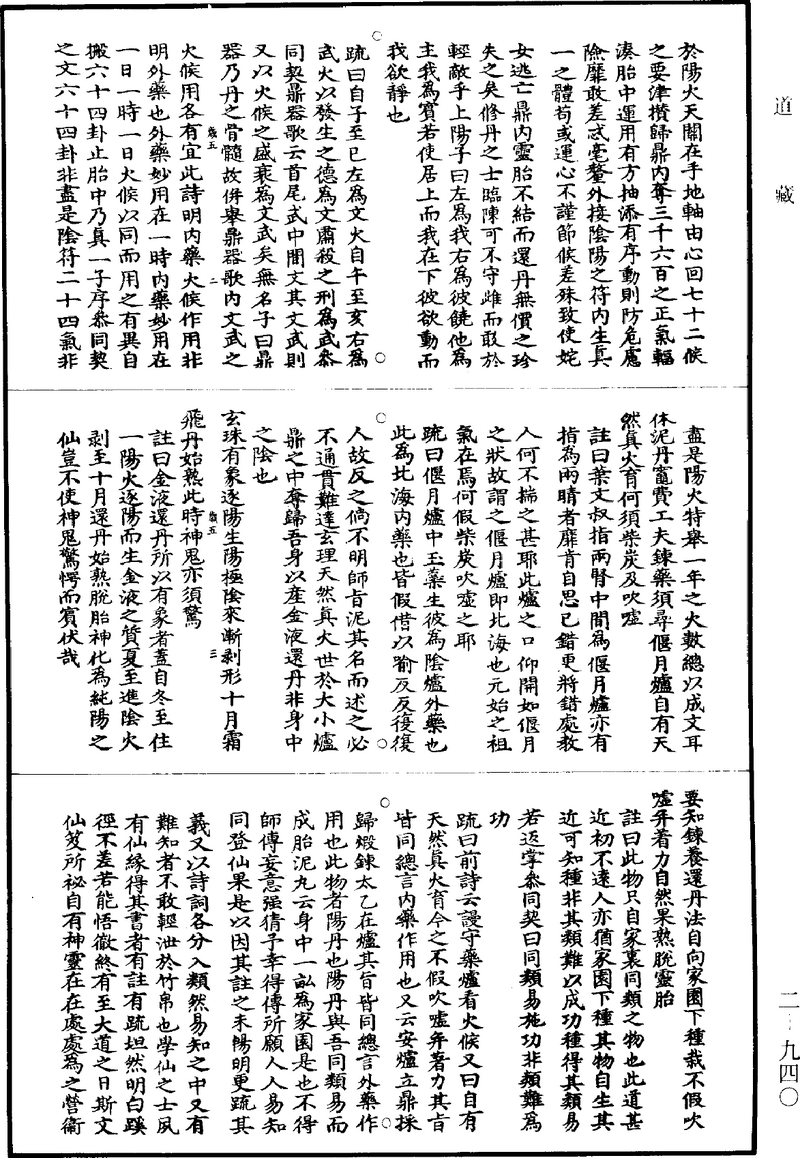 道藏
二-九四〇
於陽火天關在手地軸由心回七十二候
之要津攢歸鼎內奪三千六百之正氣輻
湊胎中運用有方抽添有序動則防危慮
險靡敢差忒毫釐外接陰陽之符內生真
一之體苟或運心不謹節候差殊致使姹
女逃亡鼎內靈胎不結而還丹無價之珍
失之矣修丹之士臨陳可不守雌而敢於
輕敵乎上陽子曰左為我右為彼饒他為
主我為賓若使居上而我在下彼欲動而
我欲靜也
疏曰自子至巳左為文火自午至亥右為
武火以發生之德為文肅殺之刑為武叅
同契鼎器歌云首尾武中間文其文武則
又以火候之盛衰為文武矣無名子曰鼎
器乃丹之骨髓故併舉鼎器歌內文武之
歲五
二
火候用各有宜此詩明內藥火候作用非
明外藥也外藥妙用在一時內藥妙用在
一日一時一日火候以同而用之有異自
搬六十四卦止胎中乃真一子序叅同契
之文六十四卦非盡是陰符二十四氣非
盡是陽火特舉一年之火數總以成文耳
休泥丹竈費工夫鍊藥須尋偃月爐自有天
然真火育何須柴炭及吹噓
註曰葉文叔指兩腎中間為偃月爐亦有
指為兩睛者靡肯自思已錯更將錯處教
人何不揣之甚耶此爐之口仰開如偃月
之狀故謂之偃月爐即北海也元始之祖
氣在焉何假柴炭吹噓之耶
疏曰偃月爐中玉蘂生彼為陰爐外藥也
此為北海內藥也皆假借以喻反反復復
人故反之倘不明師旨泥其名而述之必
不通貫難達玄理天然真火世於大小爐
鼎之中奪歸吾身以產金液還丹非身中
之陰也
玄珠有象逐陽生陽極陰來漸剥形十月霜
歲五
三
飛丹始熟此時神鬼亦須驚
註曰金液還丹所以有象者蓋自冬至住
一陽火逐陽而生金液之質夏至進陰火
剥至十月還丹始熟脫胎神化為純陽之
仙豈不使神鬼驚愕而賓伏哉
要知鍊養還丹法自向家園下種栽不假吹
噓并着力自然果熟脫靈胎
註曰此物只自家裏同類之物也此道甚
近初不達人亦猶家園下種其物自生其
近可知種非其類難以成功種得其類易
若返掌叅同契曰同類易施功非類難為
功
疏曰前詩云謾守藥爐看火候又曰自有
天然真火育今之不假吹噓并著力其旨
皆同總言內藥作用也又云安爐立鼎採
歸煅鍊太乙在爐其旨皆同總言外藥作
用也此物者陽丹也陽丹與吾同類易而
成胎泥丸云身中一畝為家園是也不得
師傳妄意强猜予幸得傳所願人人易知
同登仙果是以因其註之未暢明更疏其
義又以詩詞各分入類然易知之中又有
難知者不敢輕泄於竹帛也學仙之士夙
有仙緣得其書者有註有疏坦然明白蹊
徑不差若能悟徹終有至大道之日斯文
仙笈所祕自有神靈在在處處為之營衛